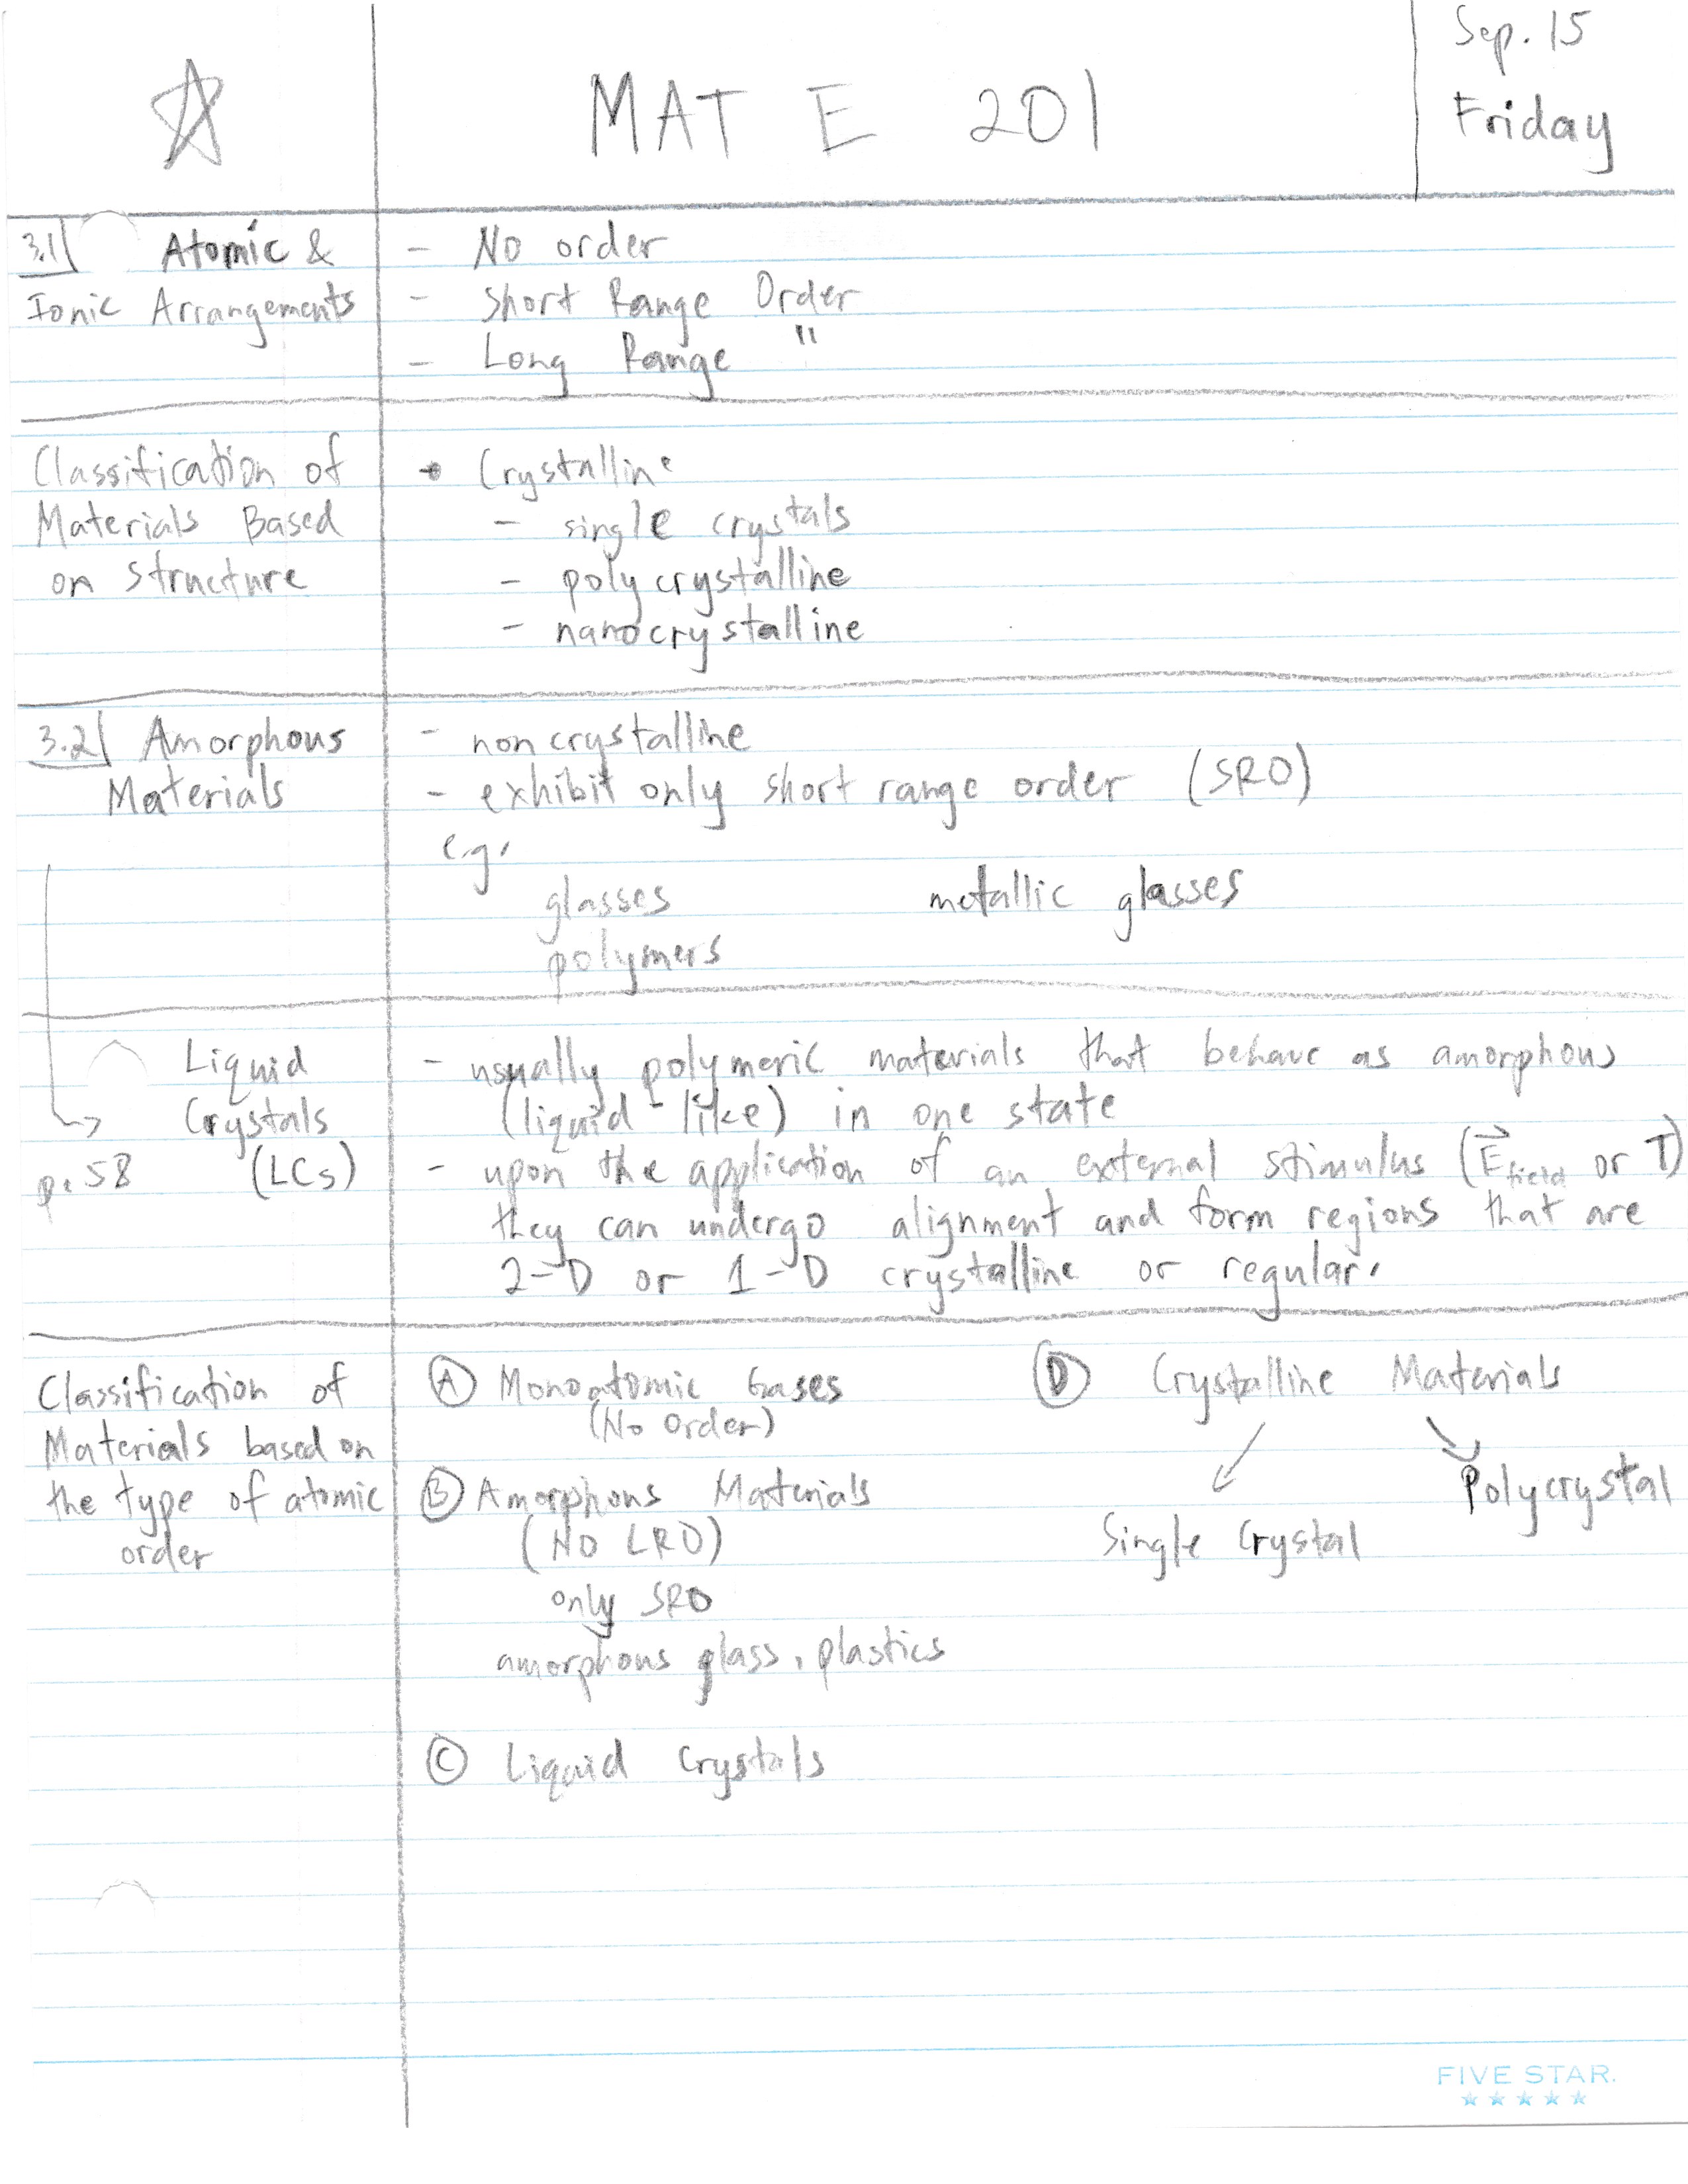 Sep. 15
MAT E 201
Friday
3.1 Atomic &
Ionic Arrangements
- No order
- Short Range Order
- Long Range "
Classification of
Materials Based
on Structure
• Crystalline
- single crystals
- poly crystalline
- nanocrystalline
3.2 Amorphous
Materials
- non crystalline
- exhibit only short range order (SRO)
e.g.
glasses metallic glasses
polymers
Liquid
Crystals
(LCs)
p. 58
- usually polymeric materials that behave as amorphous
(liquid-like) in one state
- upon the application of an external stimulus (E⃗ field or T)
they can undergo alignment and form regions that are
2-D or 1-D crystalline or regular.
Classification of
Materials based on
the type of atomic
order
Ⓐ Monoatomic Gases
(No Order)
Ⓑ Amorphous Materials
(NO LRO)
only SRO
amorphous glass, plastics
Ⓒ Liquid Crystals
Ⓓ Crystalline Materials
Single Crystal
Polycrystal
FIVE STAR.